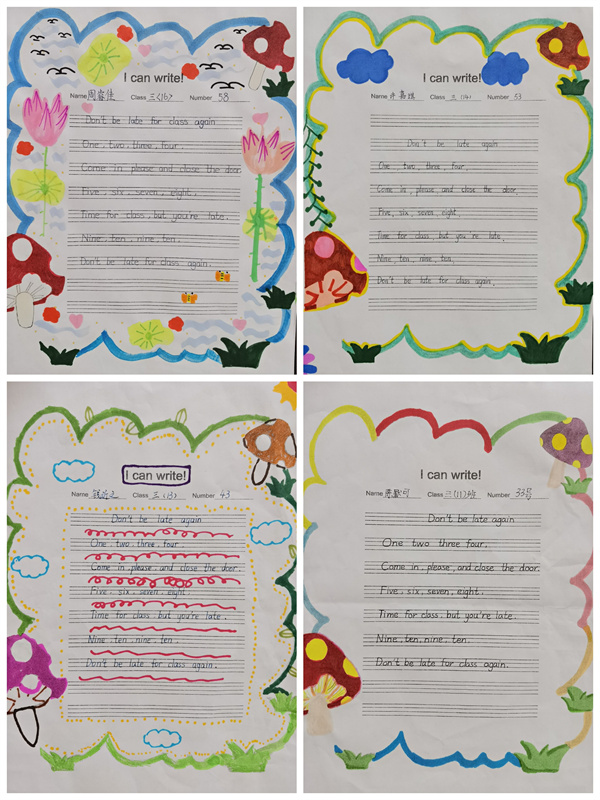 I can write!
Name 周睿佳 Class 三(16) Number 58
Don't be late for class again
One, two, three, four.
Come in please and close the door.
Five, six, seven, eight.
Time for class, but you're late.
Nine, ten, nine, ten.
Don't be late for class again.
I can write!
Name 许嘉琪 Class 三(14) Number 53
Don't be late again
One, two, three, four,
Come in, please, and close the door,
Five, six, seven, eight,
Time for class, but you're late,
Nine, ten, nine, ten,
Don't be late for class again,
I can write!
Name Class 三(13) Number 43
Don't be late again
One, two, three, four
Come in, please, and close the door.
Five, six, seven, eight.
Time for class, but you're late.
Nine, ten, nine, ten.
Don't be late for class again.
I can write!
Name Class 三(11)班 Number 33号
Don't be late again
One two three four.
Come in, please, and close the door.
Five, six, seven, eight.
Time for class, but you're late.
Nine, ten, nine, ten.
Don't be late for class again.